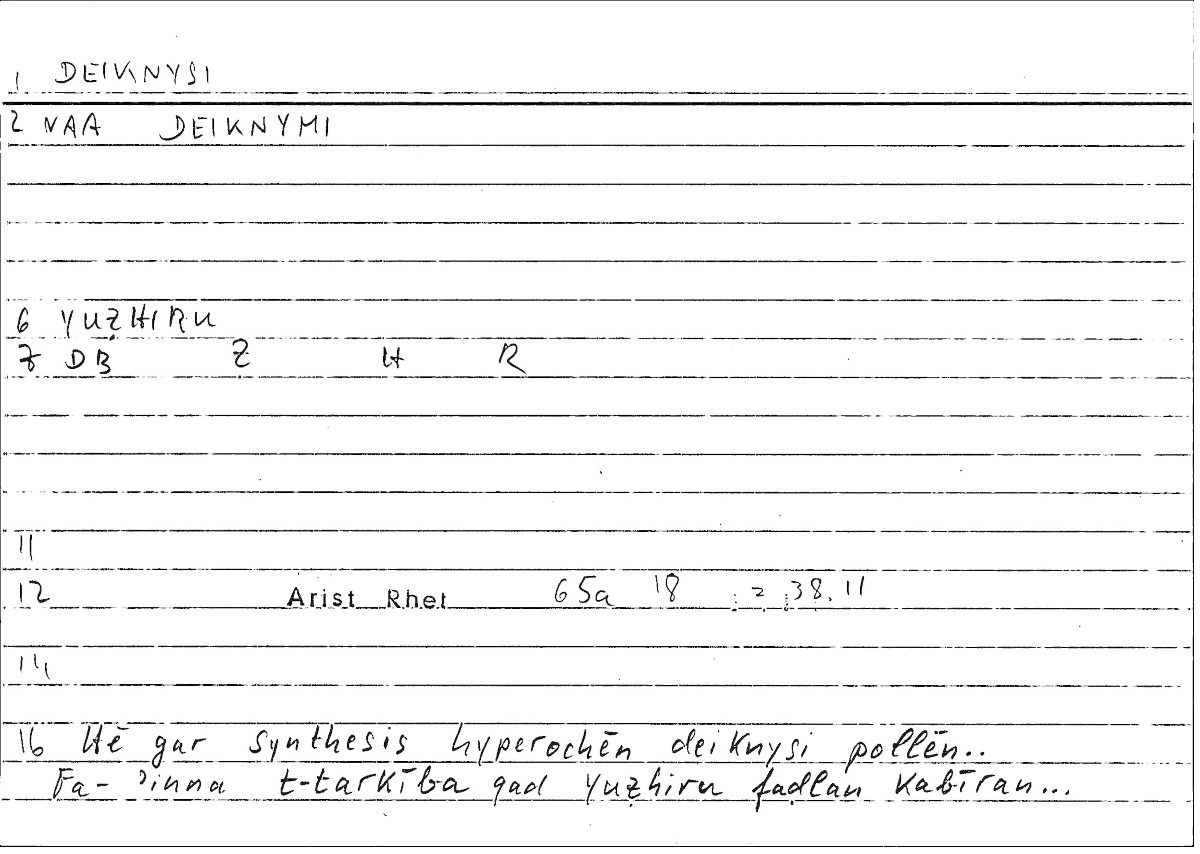 1 DEIKNYSI
2 NAA DEIKNYMI
6 YUẒHIRU
7 DB Ẓ H R
11
12 Arist Rhet 65a 18 = 38.11
14
16 Hē gar synthesis hyperochēn deiknysi pollēn..
Fa-ʾinna t-tarkība qad yuẓhiru faḍlan kabīran...